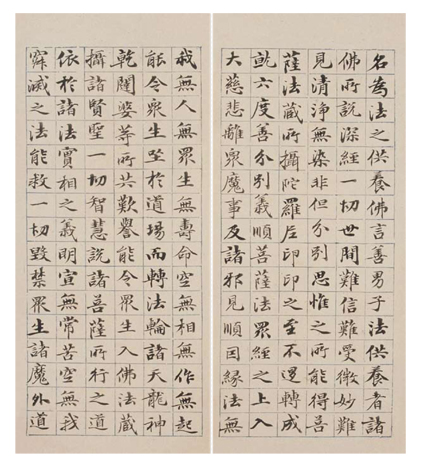 名為法之供養佛言善男子法供養者諸
佛所說深經一切世間難信難受微妙難
見清淨無染非但分別思惟之所能得菩
薩法藏所攝陀羅尼印印之至不退轉成
就六度善分別義順菩薩法眾經之上入
大慈悲離眾魔事及諸邪見順因緣法無
我無人無眾生無壽命空無相無作無起
能令眾生坐於道場而轉法輪諸天龍神
乾闥婆等所共歎譽能令眾生入佛法藏
攝諸賢聖一切智慧說諸菩薩所行之道
依於諸法實相之義明宣無常苦空無我
寂滅之法能救一切毀禁眾生諸魔外道